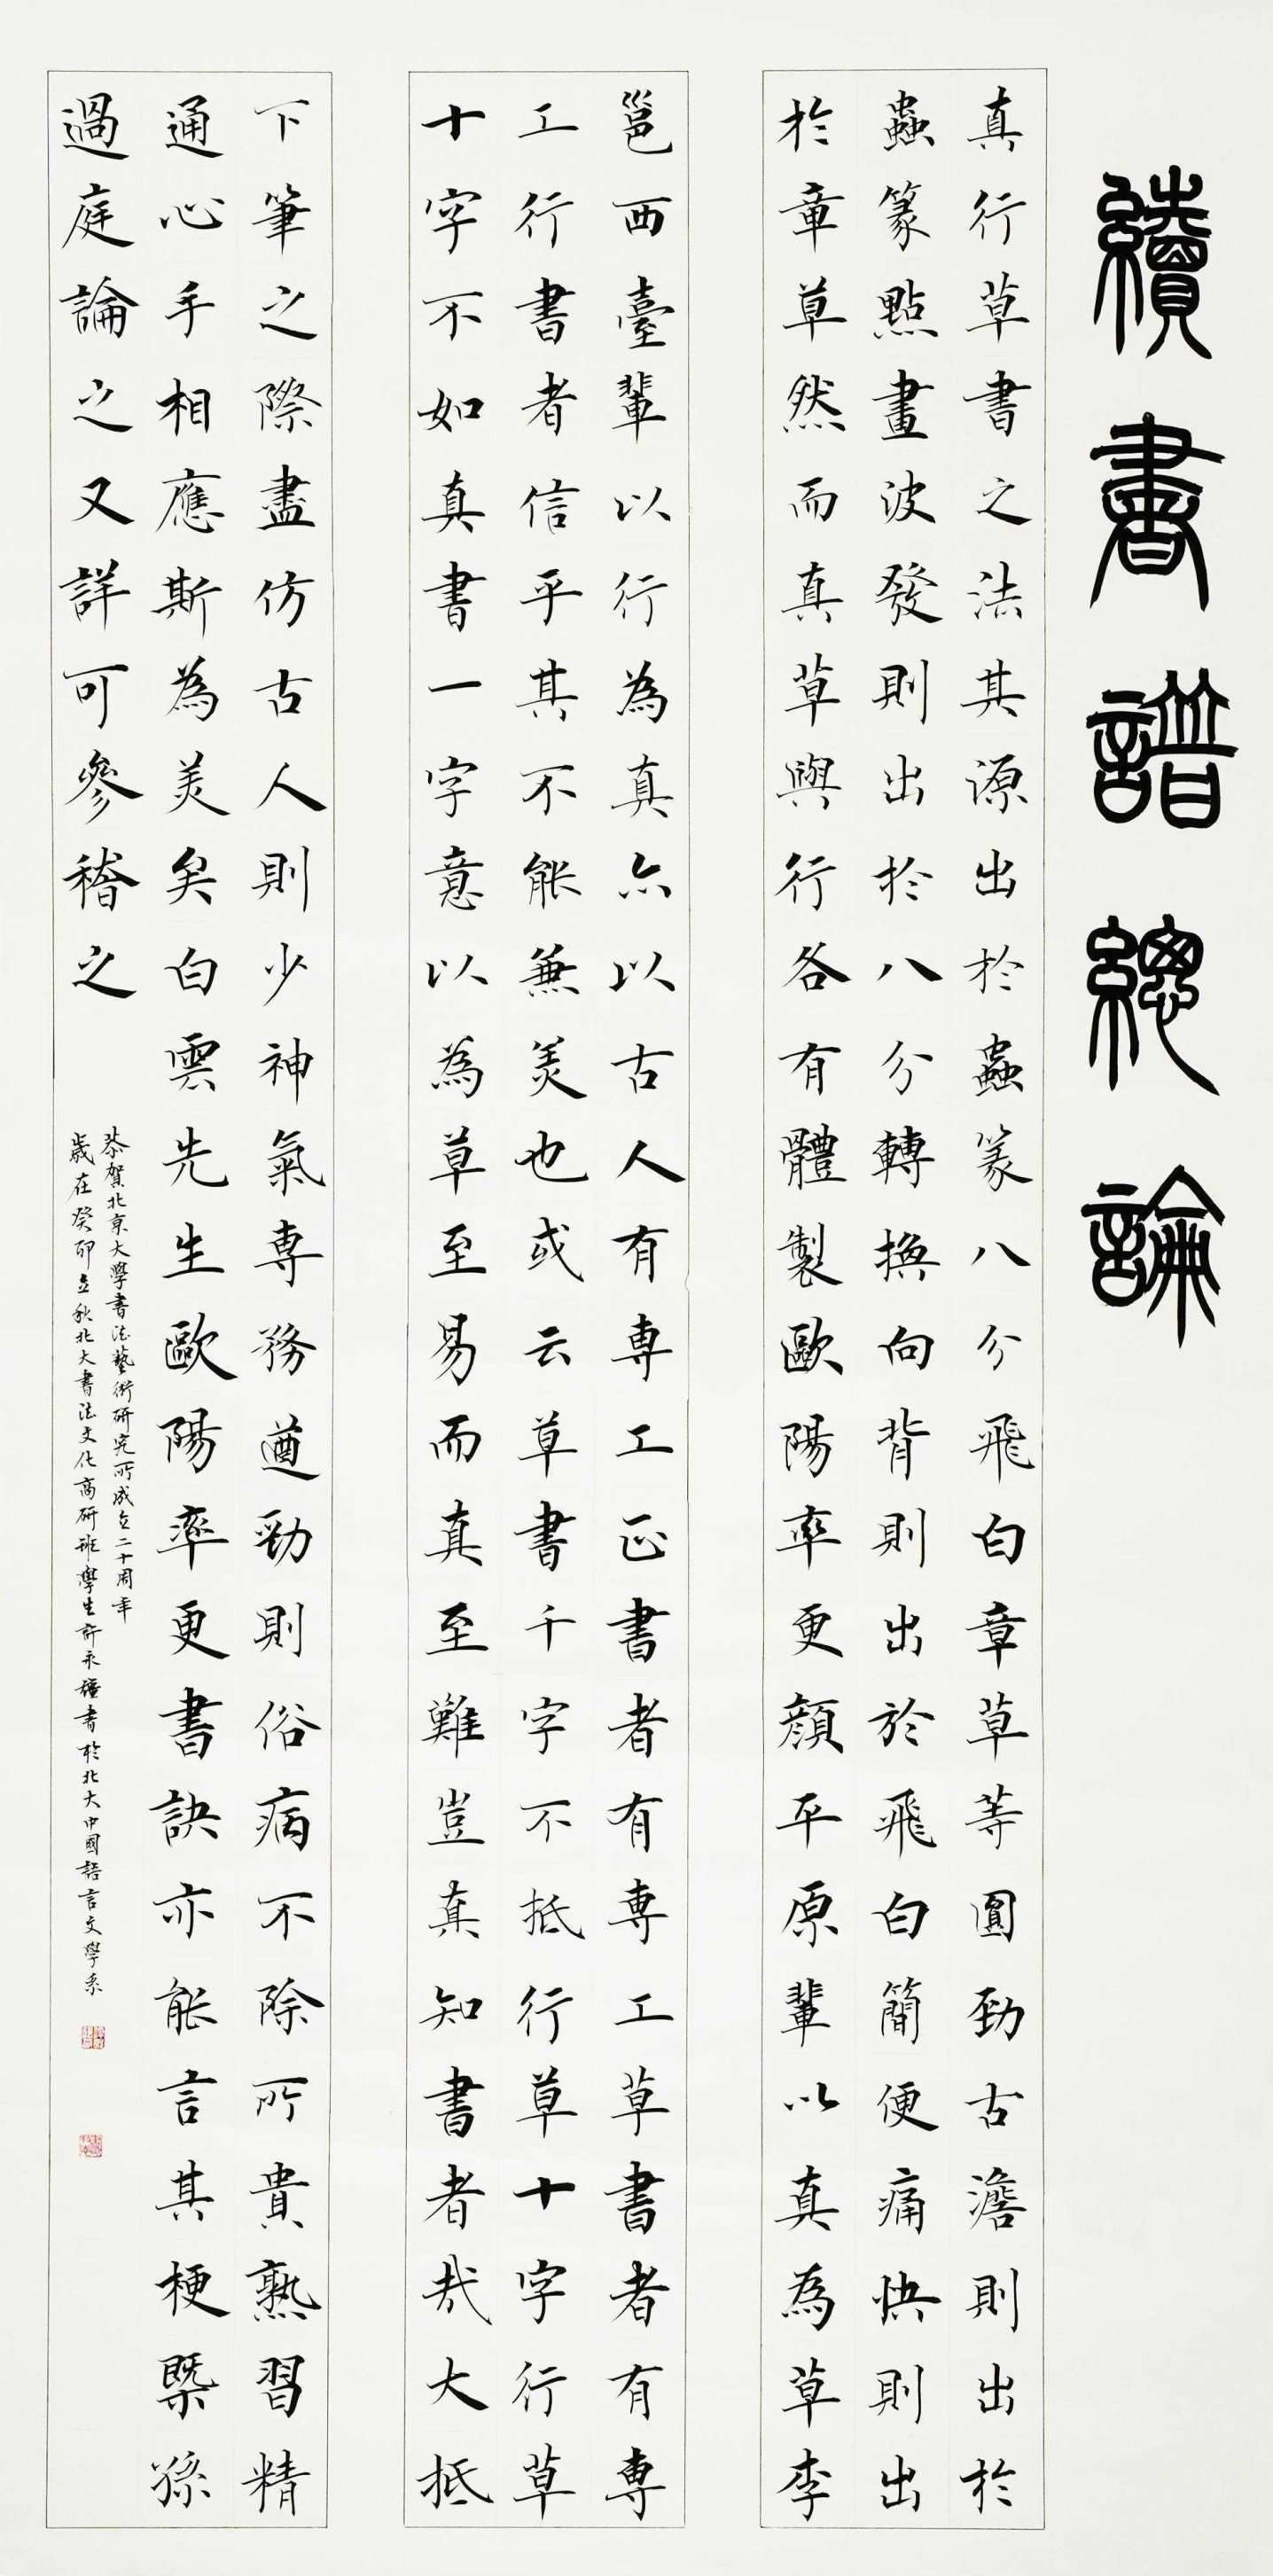 續書譜總論
真行草書之法其源出於蟲篆八分飛白章草等圓勁古澹則出於
蟲篆點畫波發則出於八分轉換向背則出於飛白簡便痛快則出
於章草然而真草與行各有體製歐陽率更顏平原輩以真為草李
邕西臺輩以行為真亦以古人有專工正書者有專工草書者有專
工行書者信乎其不能兼美也或云草書千字不抵行草十字行草
十字不如真書一字意以為草至易而真至難豈真知書者哉大抵
下筆之際盡仿古人則少神氣專務遒勁則俗病不除所貴熟習精
通心手相應斯為美矣白雲先生歐陽率更書訣亦能言其梗槩孫
過庭論之又詳可參稽之
恭賀北京大學書法藝術研究所成立二十周年
歲在癸卯立秋北大書法文化高研班學生許永書於北大中國語言文學系